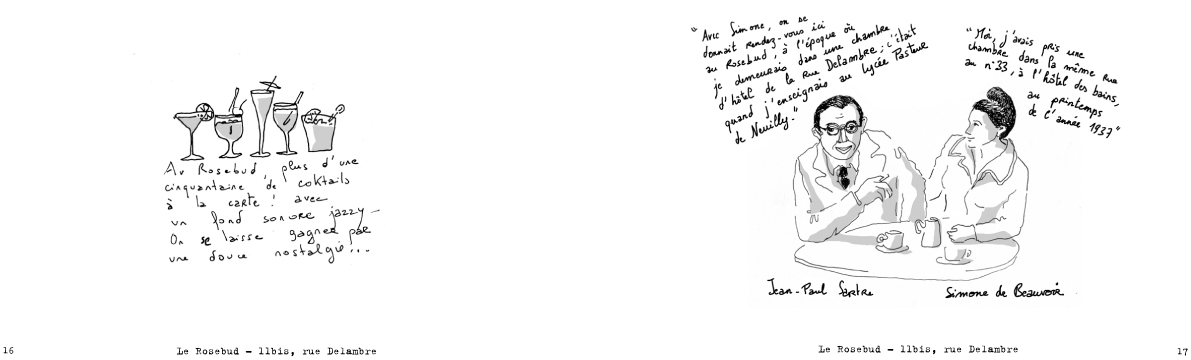 Au Rosebud, plus d'une
cinquantaine de coktails
à la carte! avec
un fond sonore jazzy –
On se laisse gagner par
une douce nostalgie...
16
Le Rosebud – 11bis, rue Delambre
"Avec Simone, on se
donnait rendez-vous ici
au Rosebud, à l'époque où
je demeurais dans une chambre
d'hôtel de la rue Delambre; c'était
quand j'enseignais au lycée Pasteur
de Neuilly."
"Moi, j'avais pris une
chambre dans la même rue
au n°33, à l'hôtel des bains,
au printemps
de l'année 1937"
Jean-Paul Sartre
Simone de Beauvoir
Le Rosebud – 11bis, rue Delambre
17